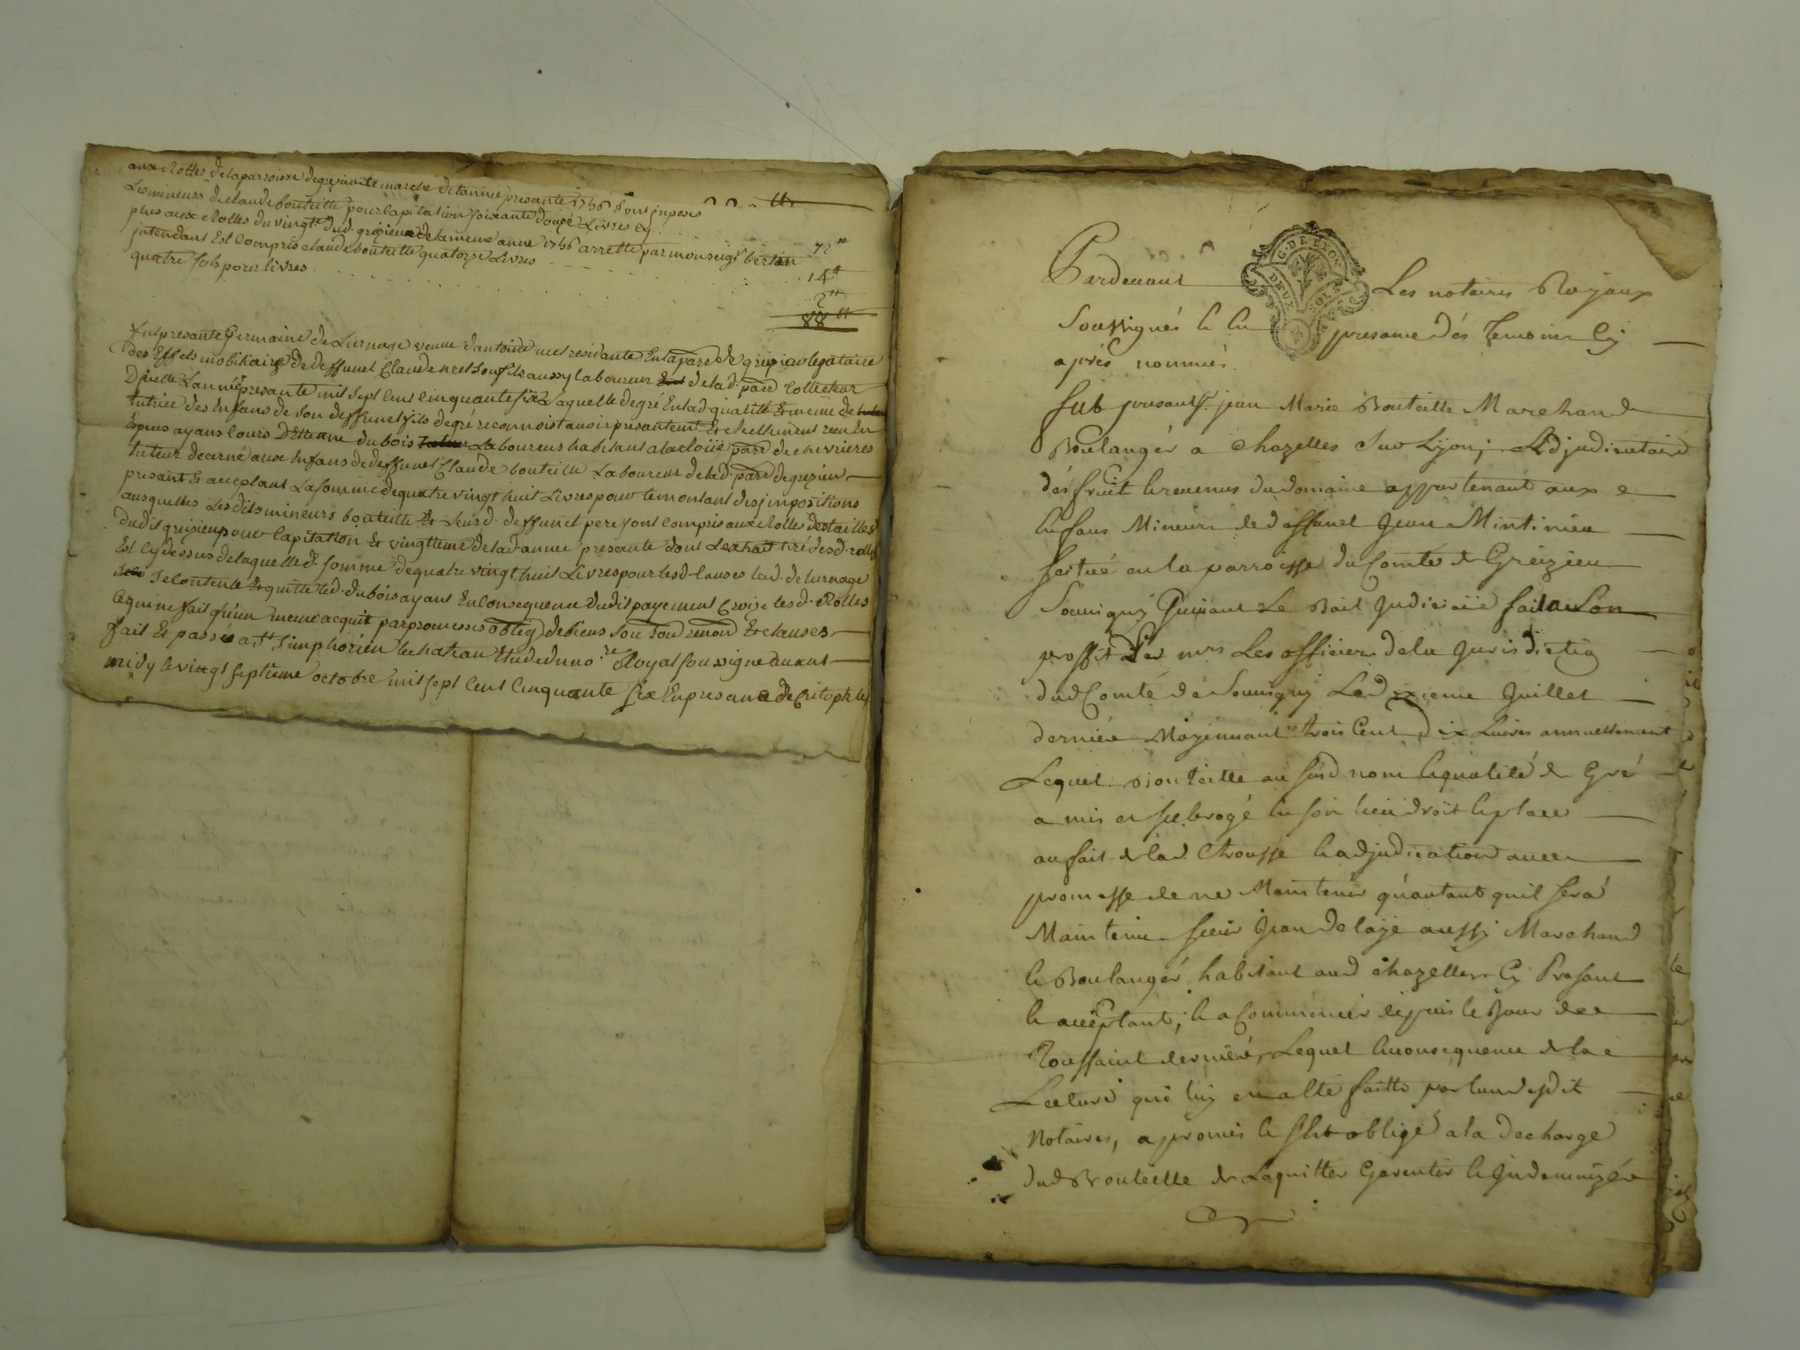 aux Rolles de la parroisse de grezieu le marché de lannée presante 1756 sont imposés
Les mineurs de claude bouteille pour Capitation soixante douze Livres cy
72ᵗᵗ
plus aux Rolles du vingt.ᵉ dud. grezieu de la meme anné 1756 arretté par monseigʳ bertin
intendant Est Compris claude bouteille quatorze Livres
14ᵗᵗ
quatre sols pour livres
2ᵗᵗ
88ᵗᵗ
fut presante Germaine de Lurnage veuve d'antoine residante En la parr de grezieu legataire
des Effets mobiliaire de deffunct Claude son fils aussy laboureur de lad. parr Collecteur
D'icelle Lannée presante mil sept cent cinquante six Laquelle de gré En lad. qualitté Et meme de
tutrice des Enfans de son deffunct fils de gré reconnoist avoir presantement Et reellement receu En
Especes ayans cours D'Estienne dubois Laboureur habitant a la cloüe parr de chevrieres
tuteur decerné aux Enfans de deffunct Claude bouteille Laboureur de lad. parr de grezieu
presant Et acceptant La somme de quatre vingt huit Livres pour le montant des impositions
ausquelles Les dits mineurs bouteille Et leurd. deffunct pere sont compris aux Rolles des tailles
dudit greizieu pour Capitation Et vingtieme de lad annee presante dont Lextrait tiré desd. rolles
Est cy dessus de laquelle d. somme de quatre vingt huit Livres pour lesd. causes lad. de Lurnage
se contente Et quitte led. dubois ayant En Consequence dudit payement Croisé lesd. Rolles
Ce qui ne fait qu'un meme acquit par promesses obblig de biens Soum renon Et clauses
fait Et passé a Sᵗ Simphorien le chateau Etude du noʳᵉ Royal soussigné avant
midy le vingt septieme octobre mil sept cent Cinquante six En presance de
G. DE LYON
DEUX SOLS
Pardevant Les notaires Royaux
Soussignés et en presance des Temoins Cy
après nommés
fut present Sʳ jean Marie Bouteille Marchand
Boulangér a chazelles Sur Lyon, Adjudicataire
des fruit et revenus du domaine appartenant aux
Enfans Mineurs de deffunct Jean Mintinieu
Scitué en la parroisse du Comté de Greizieu
Souvigny Suivant Le Bail Judiciaire fait a Son
proffit Par mrs Les officiers de la Jurisdictio
dud Comté de Souvigny Le Dixieme Juillet
derniér Moyennant trois Cent Dix Livres annuellement
Lequel Bouteille au susd nom et qualité de Gré
a mis et subrogé En son lieu droit et place
au fait de lad. Chousse et adjudication avec
promesse de ne Maintenir qu'autant quil sera
Maintenu Sieur Jean Delaye aussi Marchand
et Boulangér habitant aud chazelles Cy Present
et acceptant, et a Commencér depuis le Jour de
Toussaint derniére, Lequel En consequence de la
Lecture qui luy en a eté faitte par l'un desdit
Notaires, a promis et s'est obligé a la decharge
dud Bouteille de Laquitter Garentir et Indemnizér